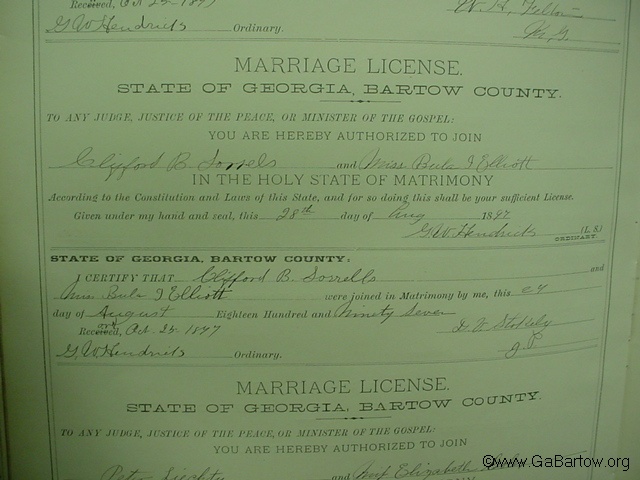 Received, Oct 25 1897
G W Hendricks Ordinary.
MARRIAGE LICENSE.
STATE OF GEORGIA, BARTOW COUNTY.
TO ANY JUDGE, JUSTICE OF THE PEACE, OR MINISTER OF THE GOSPEL:
YOU ARE HEREBY AUTHORIZED TO JOIN
Clifford B Sorrels and Miss Beula I Elliott
IN THE HOLY STATE OF MATRIMONY
According to the Constitution and Laws of this State, and for so doing this shall be your sufficient License.
Given under my hand and seal, this 28th day of Aug 1897
G W Hendricks [L. S.]
ORDINARY.
STATE OF GEORGIA, BARTOW COUNTY:
I CERTIFY THAT Clifford B. Sorrells and
Miss Beula I Elliott were joined in Matrimony by me, this
day of August Eighteen Hundred and Ninety Seven
Received, Oct. 25 1897
G W Hendricks Ordinary. J. P.
MARRIAGE LICENSE.
STATE OF GEORGIA, BARTOW COUNTY.
TO ANY JUDGE, JUSTICE OF THE PEACE, OR MINISTER OF THE GOSPEL:
YOU ARE HEREBY AUTHORIZED TO JOIN
Peter and Elizabeth
©www.GaBartow.org